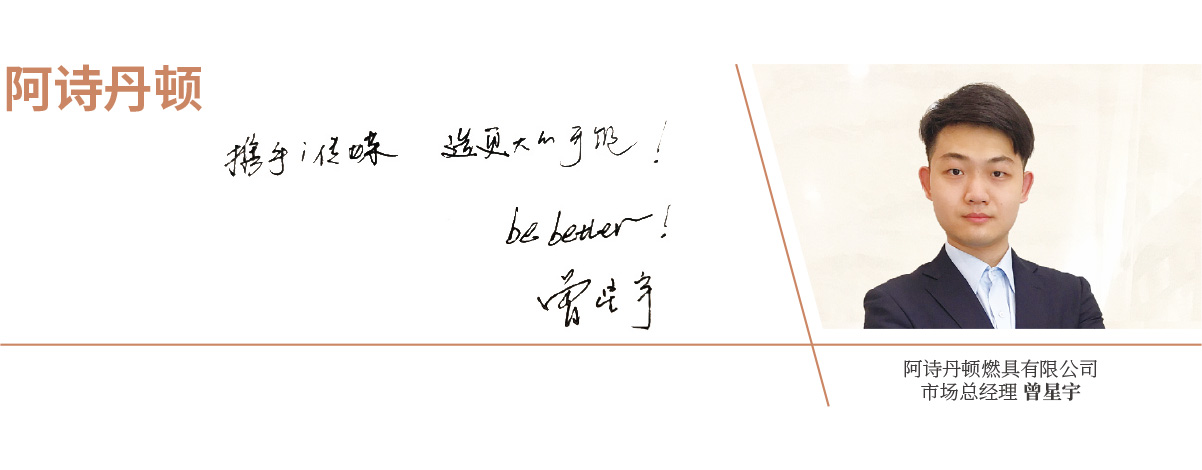 阿诗丹顿
携手i传媒 造更大的可能!
be better!
曾星宇
阿诗丹顿燃具有限公司
市场总经理 曾星宇